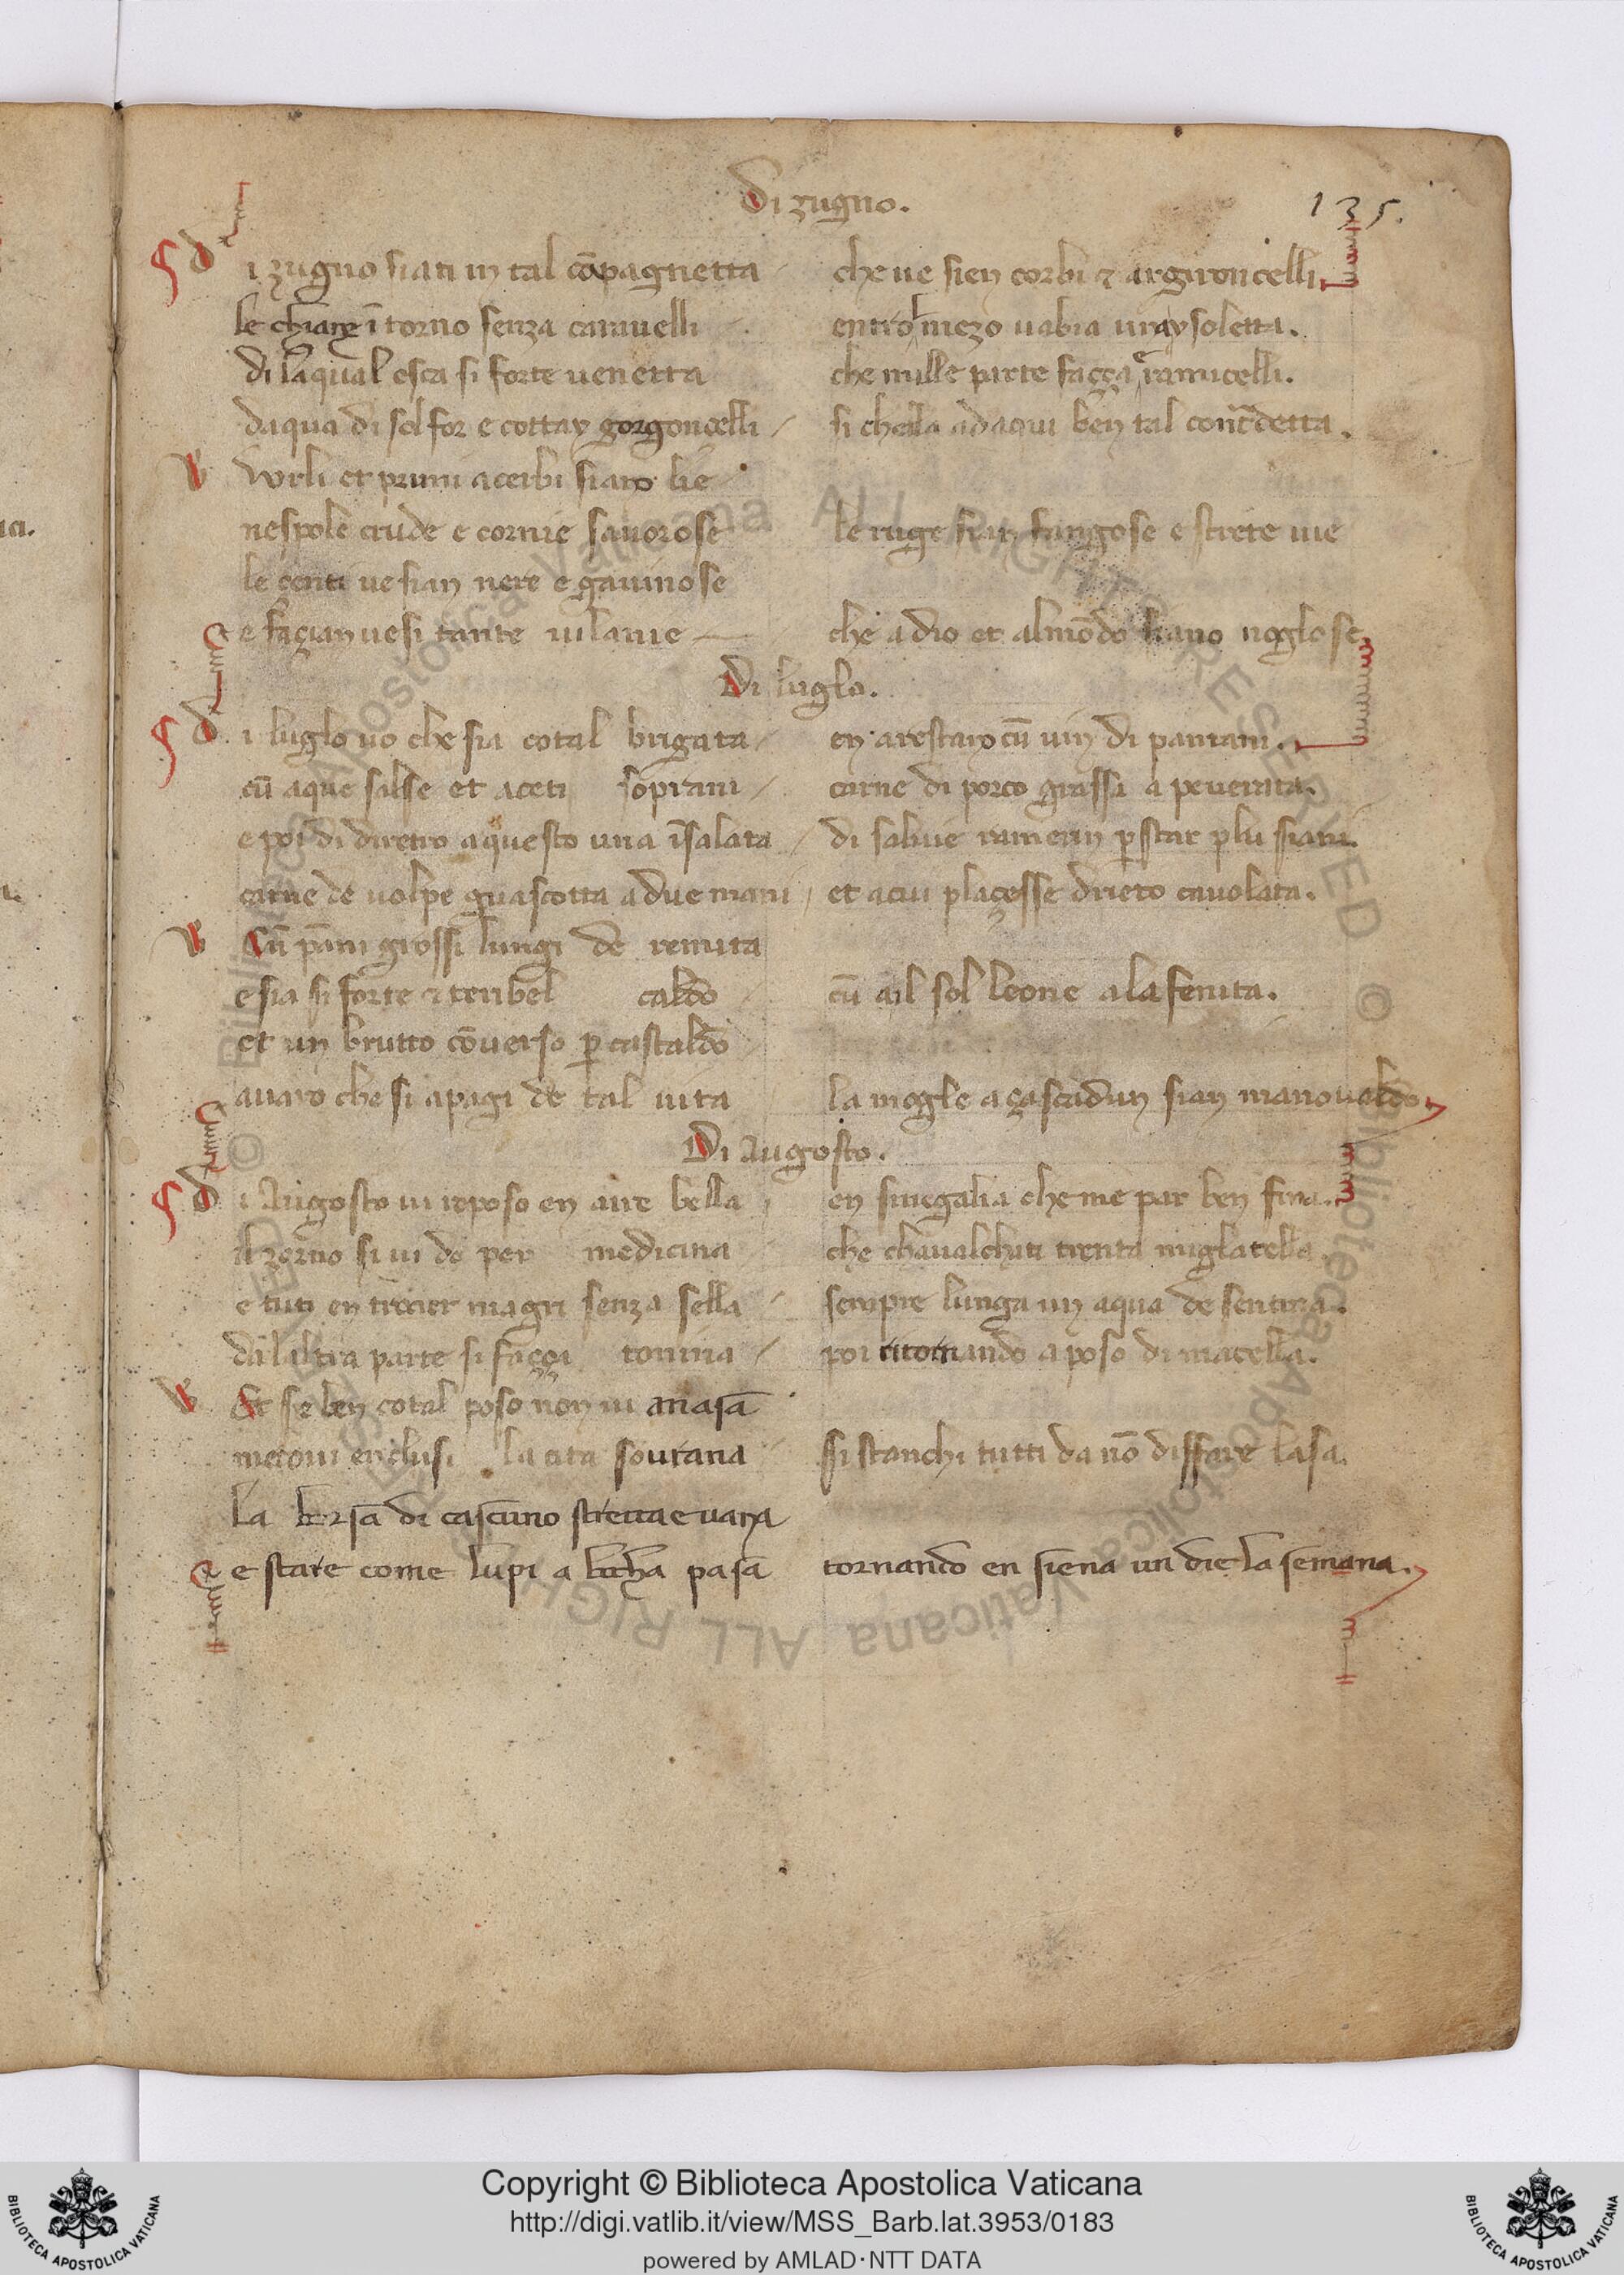 Di zugno.
135.
d i zugno siati in tal cōpagnetta che ue sien corbi et argironcelli
le chiare ītorno senza carauelli entro l mezo uabia una ysoletta.
Di laqual esca si forte uenetta che mille parte facça ramicelli.
daqua di solfor e cottay gorgoncelli si chella adaqui ben tal contdetta.
Sorbi et pruni acerbi siano lie
nespole crude e cornie sauorose le ruge sian fangose e strete uie
le genti ue sian nere e gauinose
e façianuesi tante uilanie che a dio et almōdo siano noglose
Di luglo.
d i luglo uo che sia cotal brigata en arestano cū uin di pantani.
cū aque salse et aceti soprani carne di porco grassa a peuerata.
e poi di dirietro a questo una īsalata di saluie ramerin p star plu siani.
carne de uolpe guascotta a due mani et acui placesse drieto cauolata.
Cū pāni grossi lungi de remita
e sia si forte et teribel caldo cū a il sol leone a la fenita.
et un brutto cōuerso p castaldo
auaro che si apagi de tal uita la mogle a cascadun sian manoualdo
Di Augosto.
d i Augosto ui reposo en aire bella en sinegalia che me par ben fina.
il zorno si ui do per medicina che chaualchiti trenta miglatella.
e tuti en troter magri senza sella sempre lunga un aqua de sentina.
da laltra parte si façça tonina poi ritornando a poso di macella.
Et se ben cotal poso non ui anasa
metoui enclusi la cita sourana si stanchi tutti da nō disfare lasa.
la borsa di cascuno stretta e uana
e stare come lupi a bocha pasa tornando en siena un die la semana.
Copyright © Biblioteca Apostolica Vaticana
http://digi.vatlib.it/view/MSS_Barb.lat.3953/0183
powered by AMLAD·NTT DATA